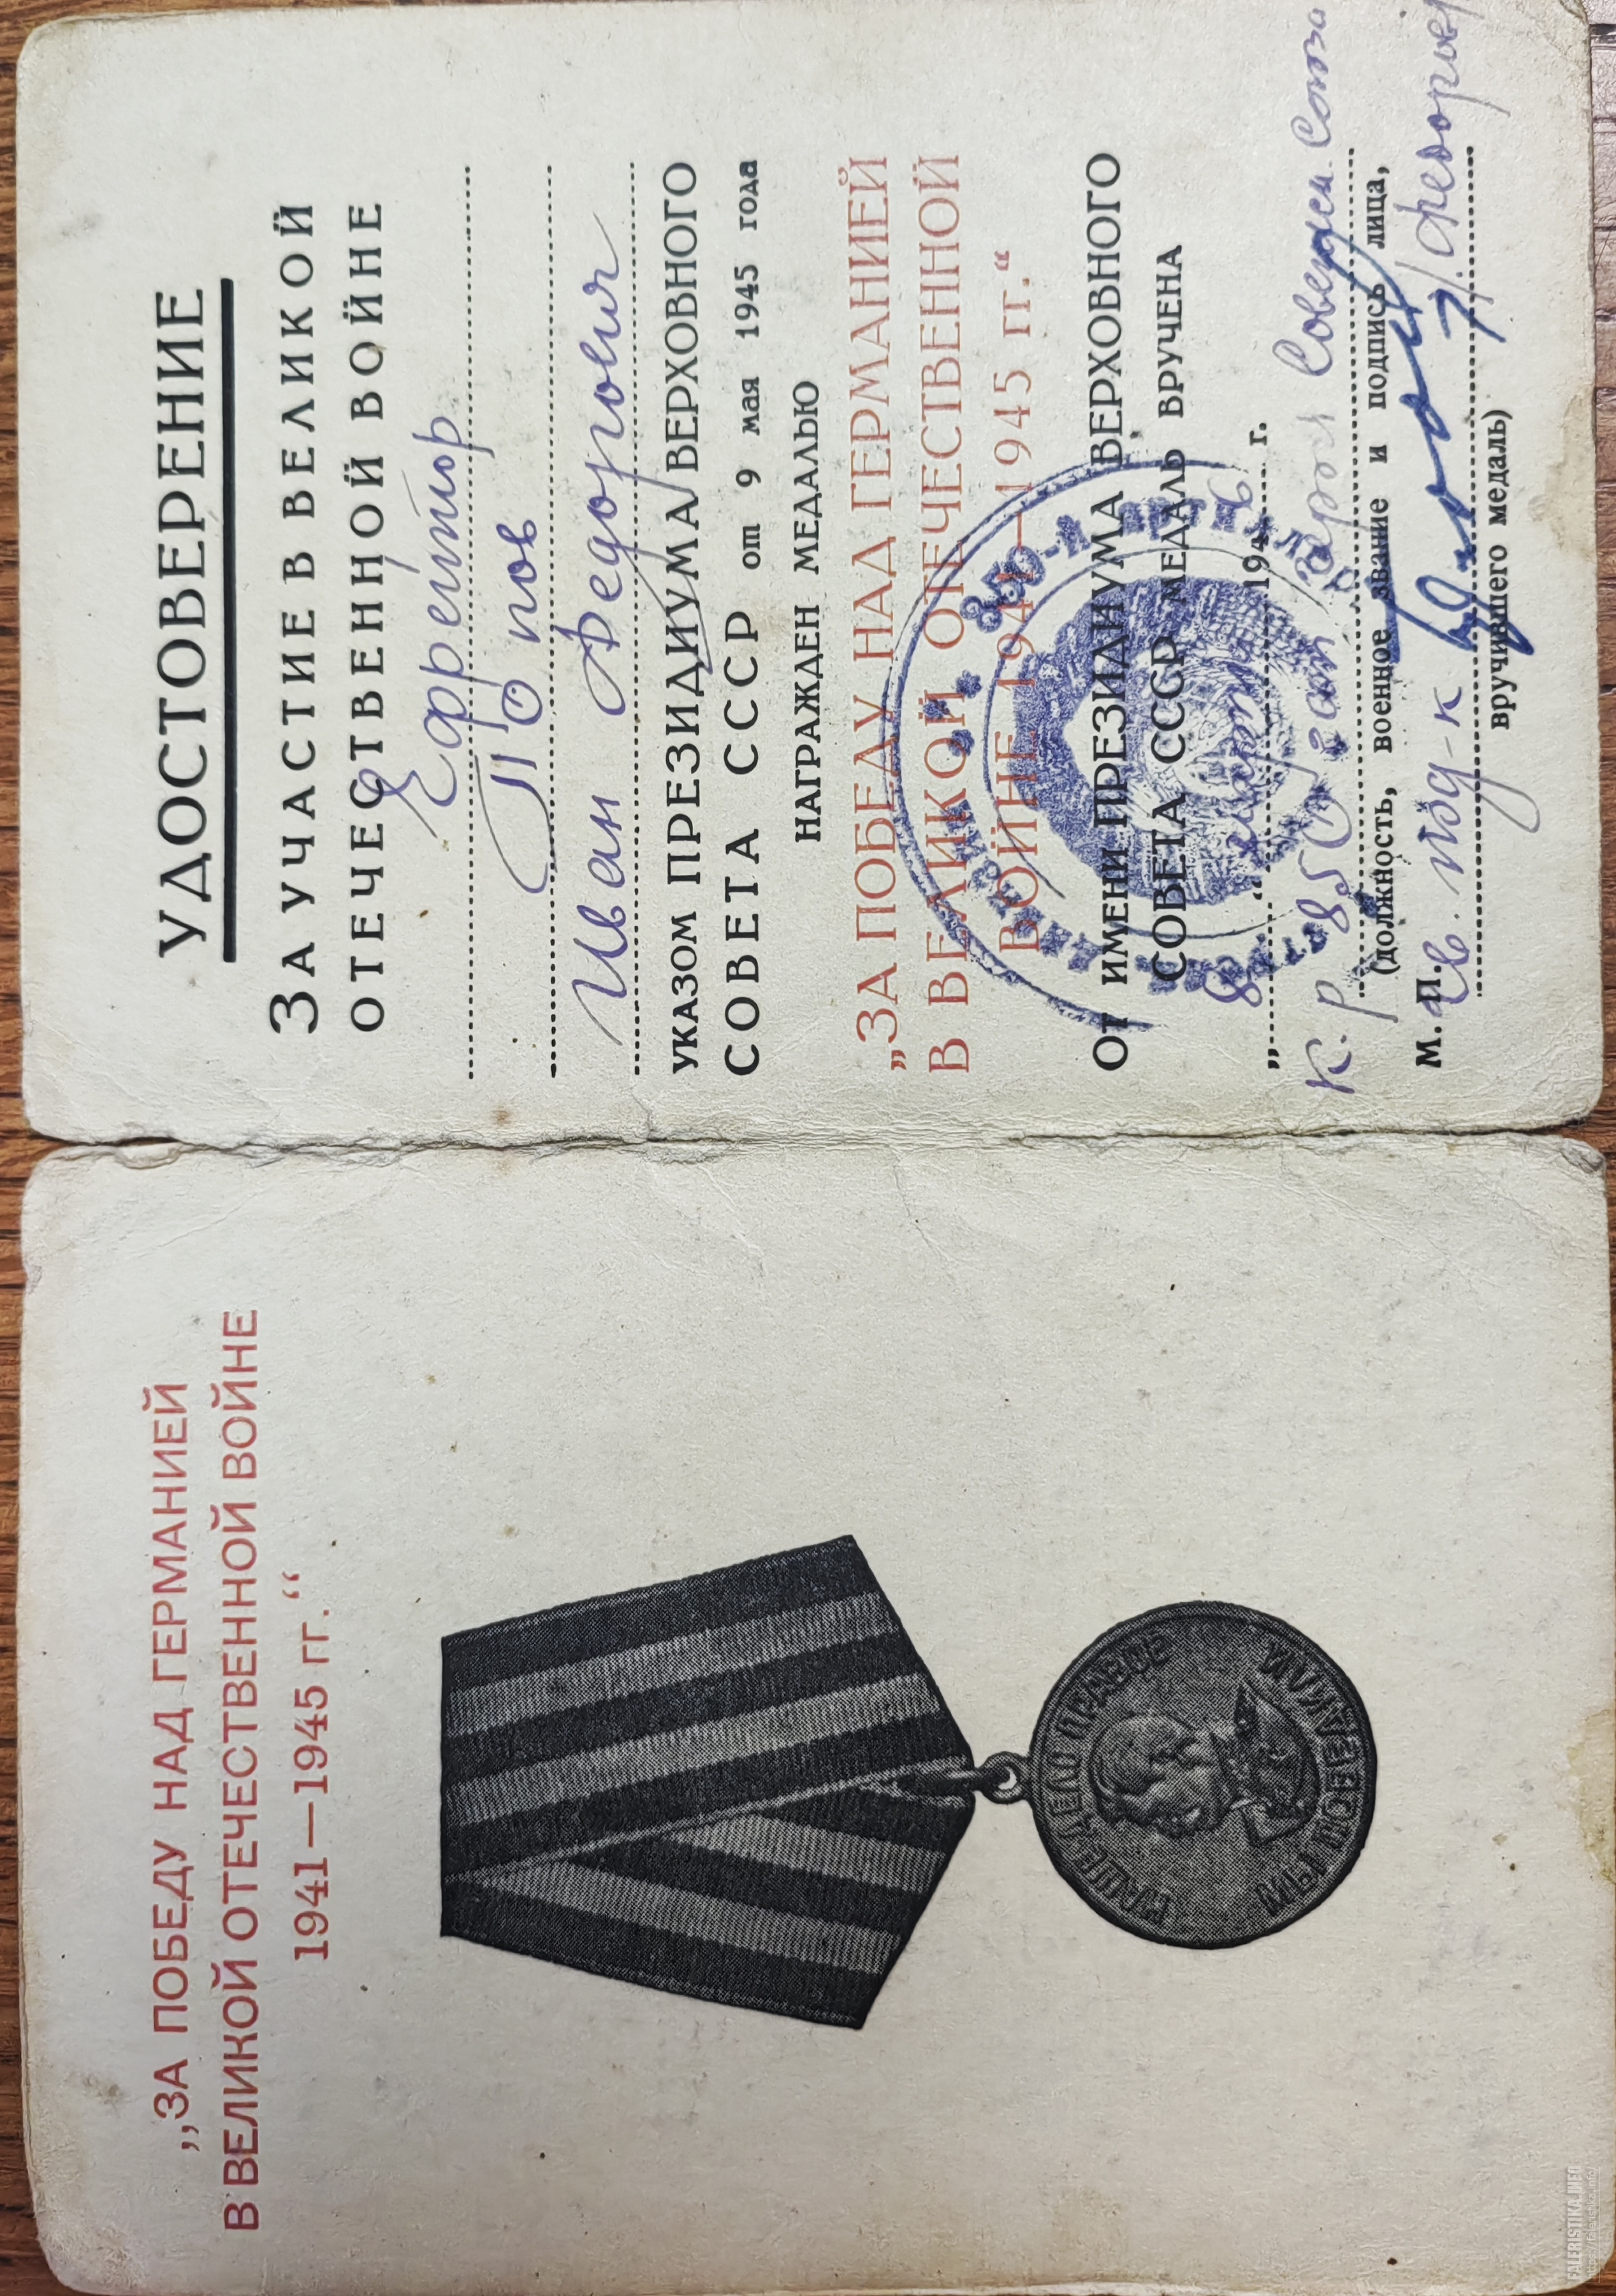 „ЗА ПОБЕДУ НАД ГЕРМАНИЕЙ
В ВЕЛИКОЙ ОТЕЧЕСТВЕННОЙ ВОЙНЕ
1941—1945 гг.“
НАШЕ ДЕЛО ПРАВОЕ
МЫ ПОБЕДИЛИ
УДОСТОВЕРЕНИЕ
ЗА УЧАСТИЕ В ВЕЛИКОЙ
ОТЕЧЕСТВЕННОЙ ВОЙНЕ
Ефрейтор
Попов
Иван Федорович
УКАЗОМ ПРЕЗИДИУМА ВЕРХОВНОГО
СОВЕТА СССР от 9 мая 1945 года
НАГРАЖДЕН МЕДАЛЬЮ
„ЗА ПОБЕДУ НАД ГЕРМАНИЕЙ
В ВЕЛИКОЙ ОТЕЧЕСТВЕННОЙ
ВОЙНЕ 1941—1945 гг.“
От ИМЕНИ ПРЕЗИДИУМА ВЕРХОВНОГО
СОВЕТА СССР МЕДАЛЬ ВРУЧЕНА
„8“ марта 1946 г.
К-р 850 Герой Советск. Союза
(должность, военное звание и подпись лица,
М. П. Гв. под-к
вручившего медаль)
FALERISTIKA.INFO